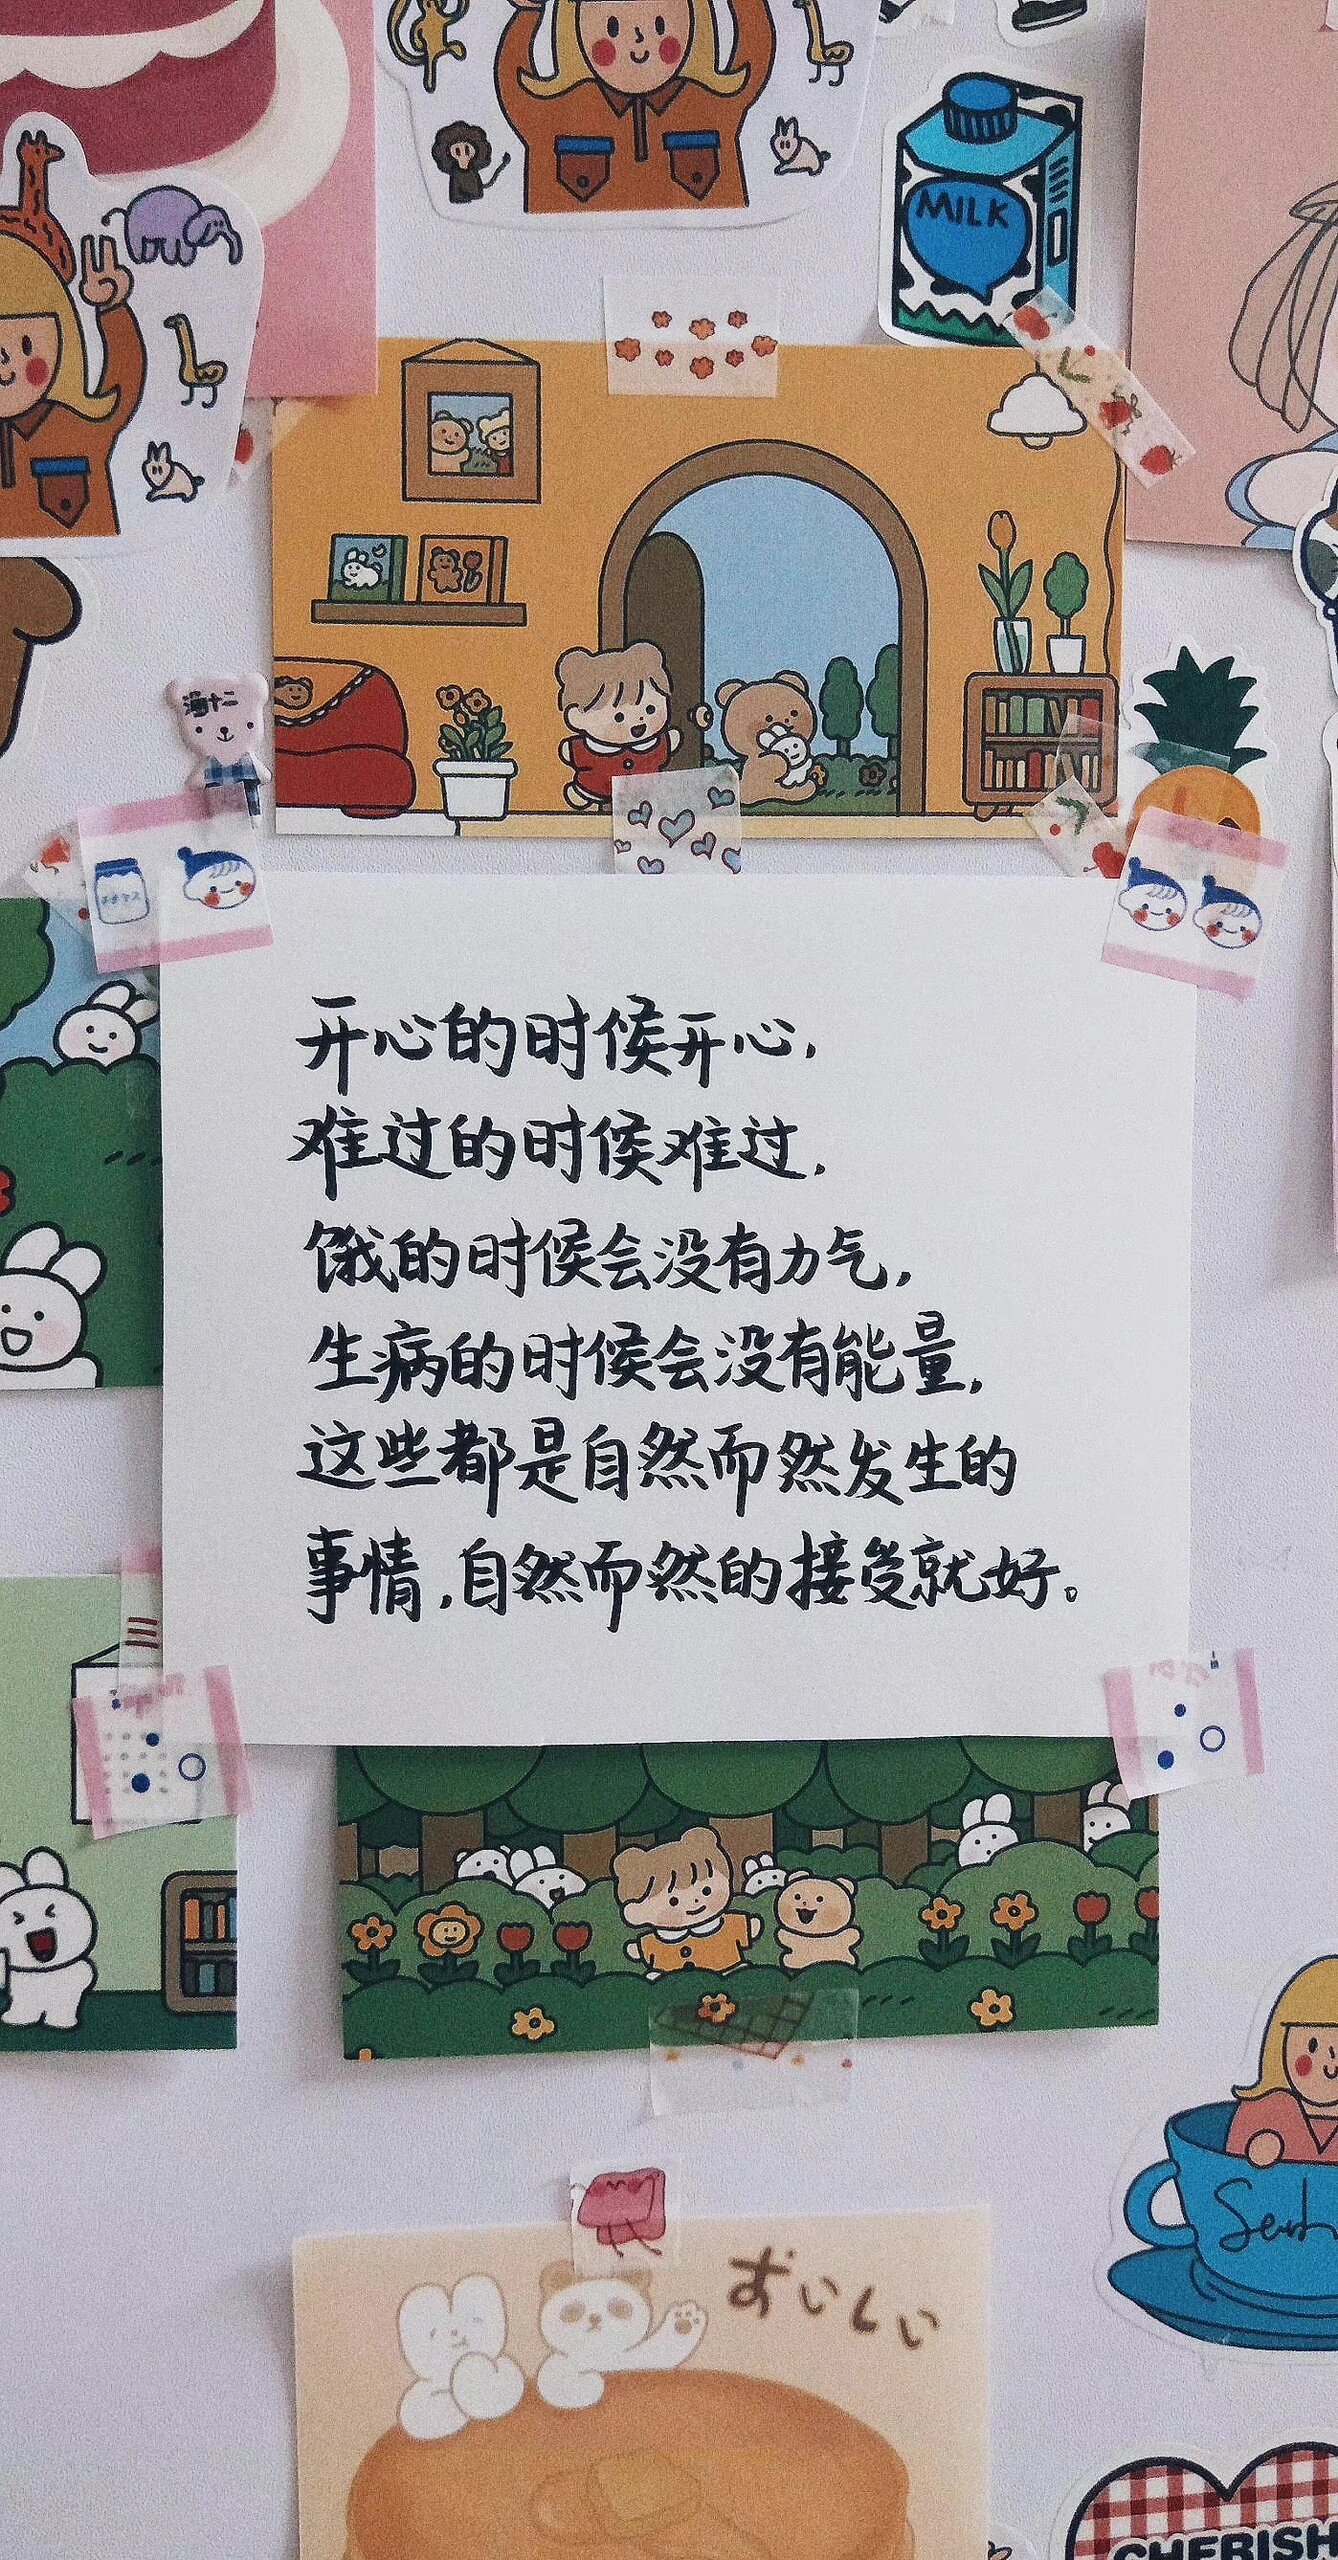 MILK
海十二
开心的时候开心,
难过的时候难过,
饿的时候会没有力气,
生病的时候会没有能量,
这些都是自然而然发生的
事情,自然而然的接受就好。
おいしい
CHERISH